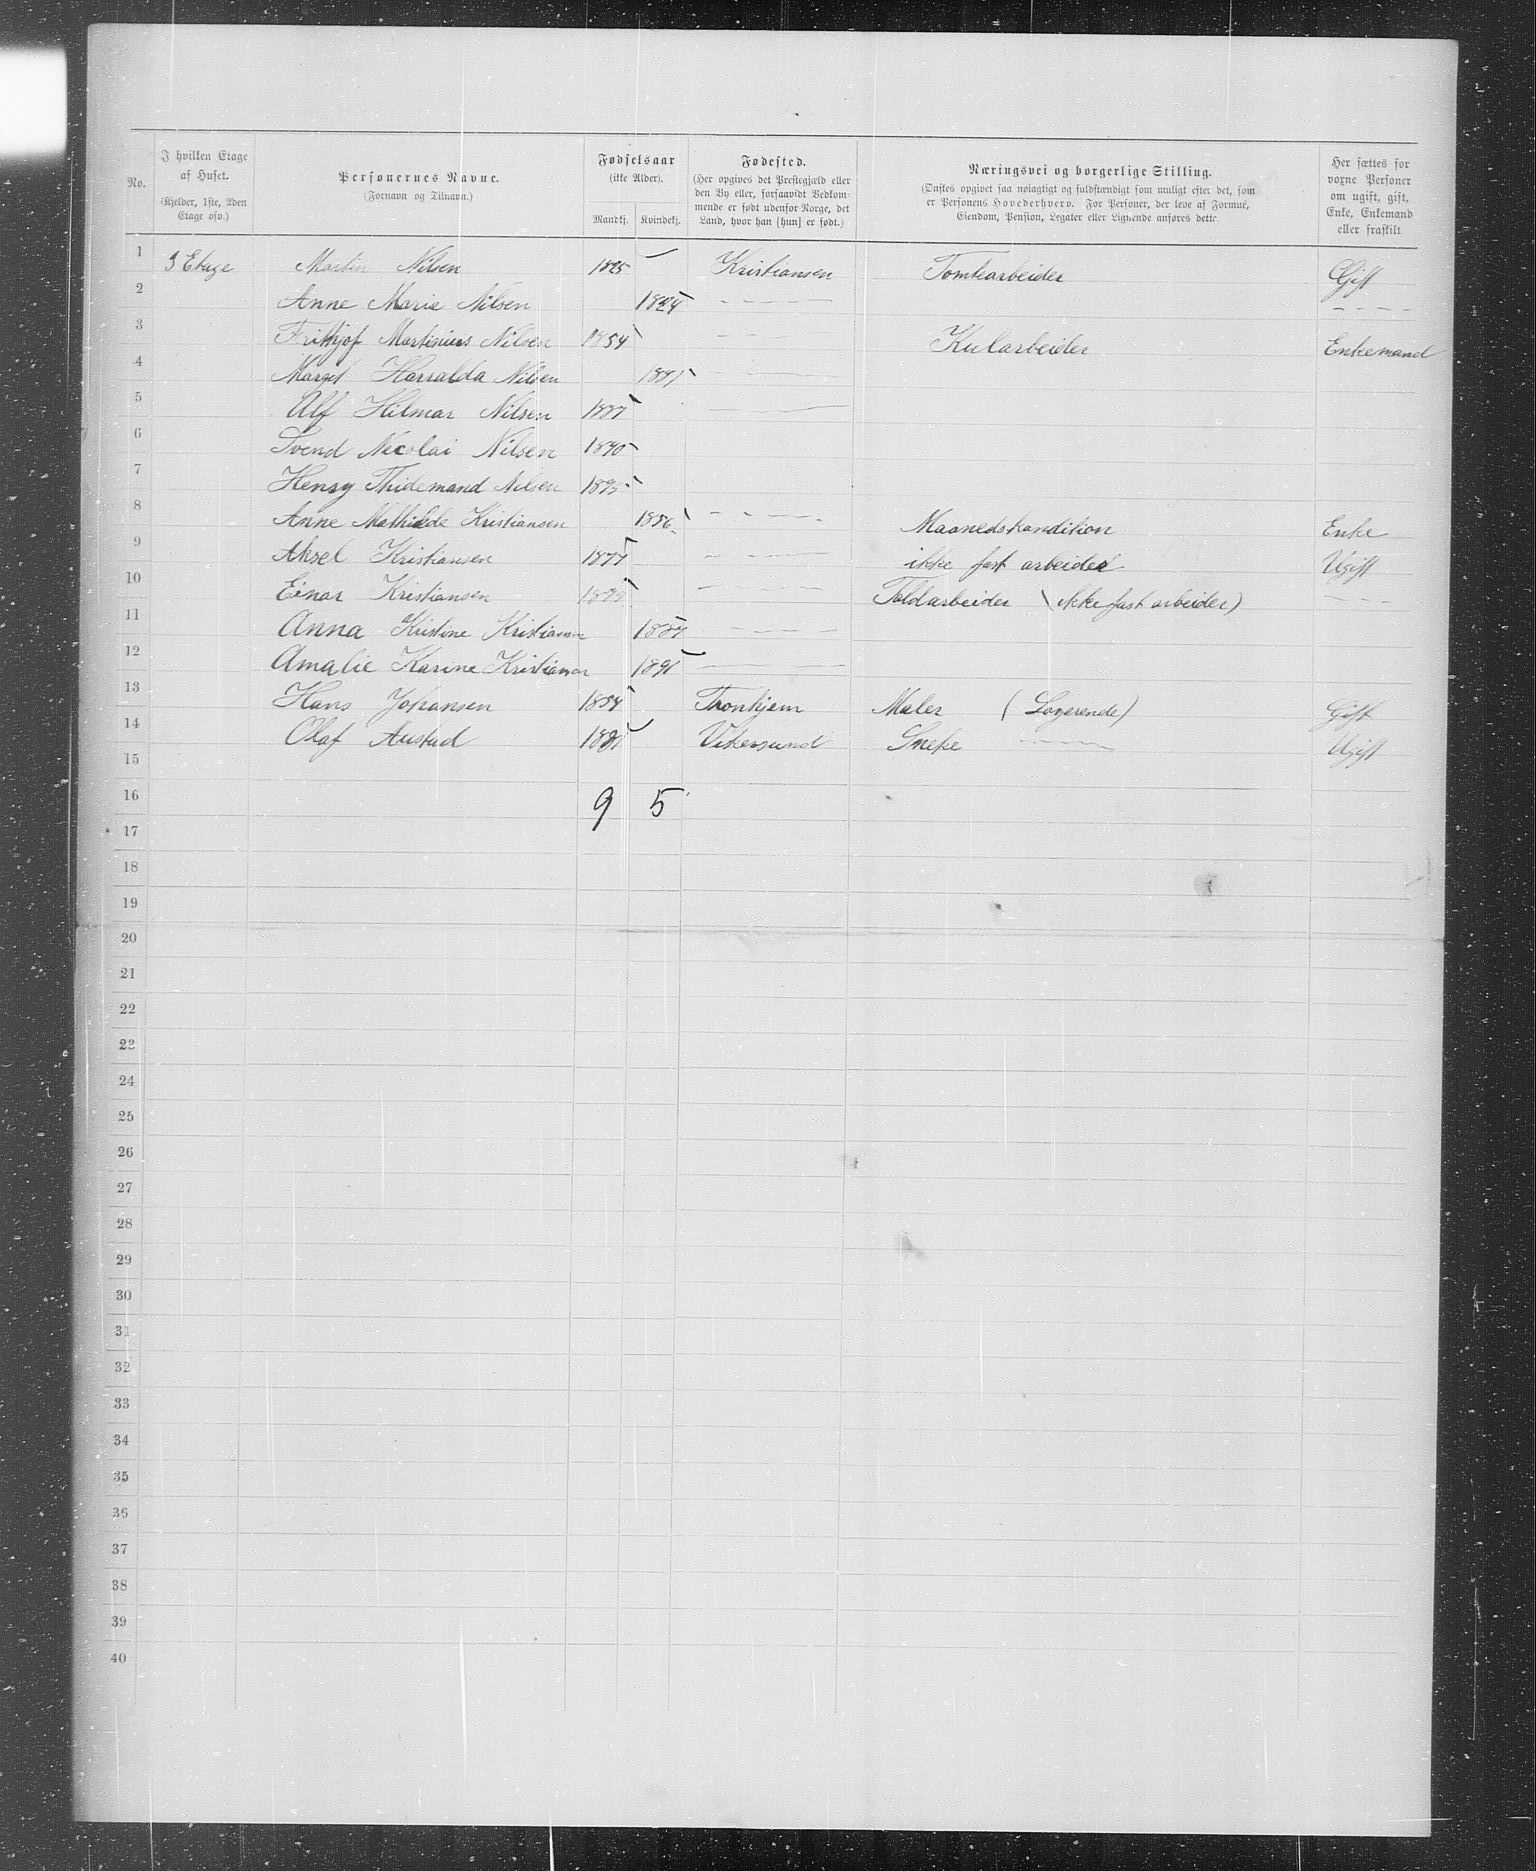 No.
I hvilken Etage af Huset. (Kjelder, 1ste, 2den Etage osv.)
Personernes Navne. (Fornavn og Tilnavn.)
Fødselsaar (ikke Alder). Mandkj. Kvindekj.
Fødested. (Her opgives det Prestegjæld eller den By eller, forsaavidt Vedkommende er født udenfor Norge, det Land, hvor han [hun] er født.)
Næringsvei og borgerlige Stilling. (Ønskes opgivet saa nøiagtigt og fuldstændigt som muligt efter det, som er Personens Hovederhverv. For Personer, der leve af Formue, Eiendom, Pension, Legater eller Lignende anføres dette.
Her sættes for voxne Personer om ugift, gift, Enke, Enkemand eller fraskilt
1 3 Etage Martin Nilsen 1825 Kristiansen Tomtearbeider Gift
2 Anne Marie Nilsen 1824 - - - - - - - -
3 Frithjof Martinius Nilsen 1854 - - - Kularbeider Enkemand
4 Margit Harralda Nilsen - - -
5 Alf Hilmar Nilsen 1887 - - -
6 Svend Nicolai Nilsen 1890
7 Henry Thidemand Nilsen 1895
8 Anne Mathilde Kristiansen - - - - Maanedskondition Enke
9 Aksel Kristiansen 1877 - - - - ikke fast arbeider Ugift
10 Einar Kristiansen - - - - (ikke fast arbeider) - - - -
11 Anna Kristine Kristiansen 1887 - - - -
12 Amalie Karine Kristiansen - - -
13 Hans Johansen 1854 Tronhjem Maler (Logerende) Gift
14 Olaf Austad Vikersund Sneke - - - - Ugift
15
16 9 5
17
18
19
20
21
22
23
24
25
26
27
28
29
30
31
32
33
34
35
36
37
38
39
40